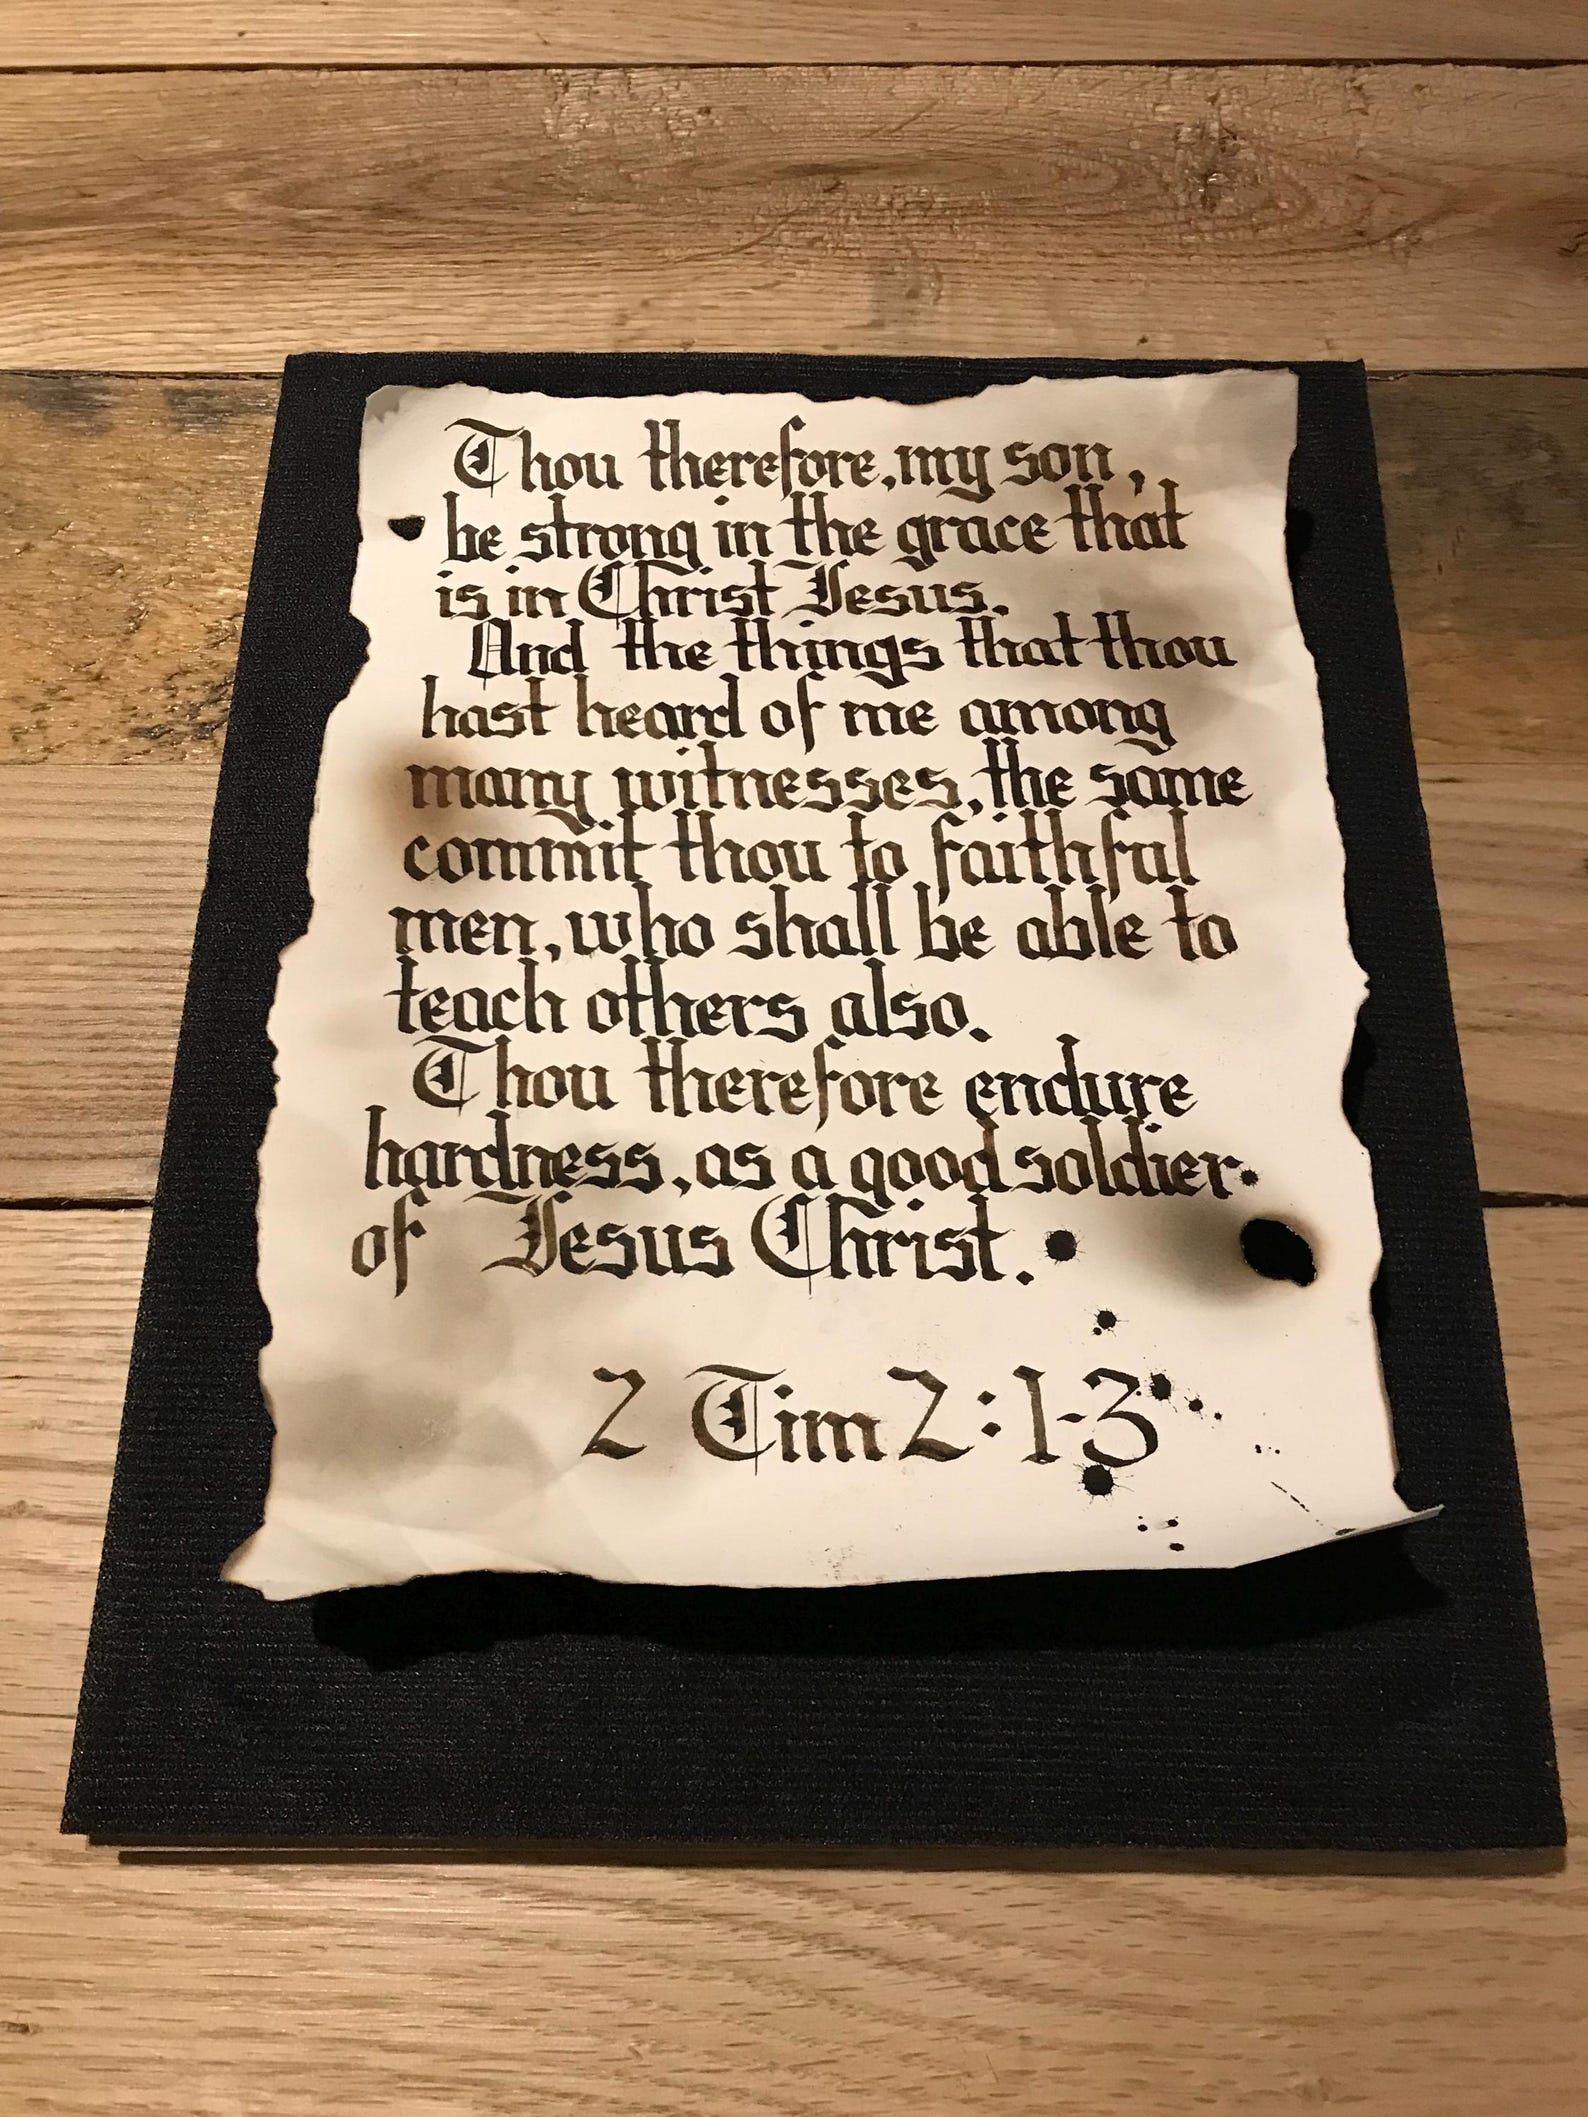 Thou therefore, my son,
be strong in the grace that
is in Christ Jesus.
And the things that thou
hast heard of me among
many witnesses, the same
commit thou to faithful
men, who shall be able to
teach others also.
Thou therefore endure
hardness, as a good soldier
of Jesus Christ.
2 Tim 2:1-3